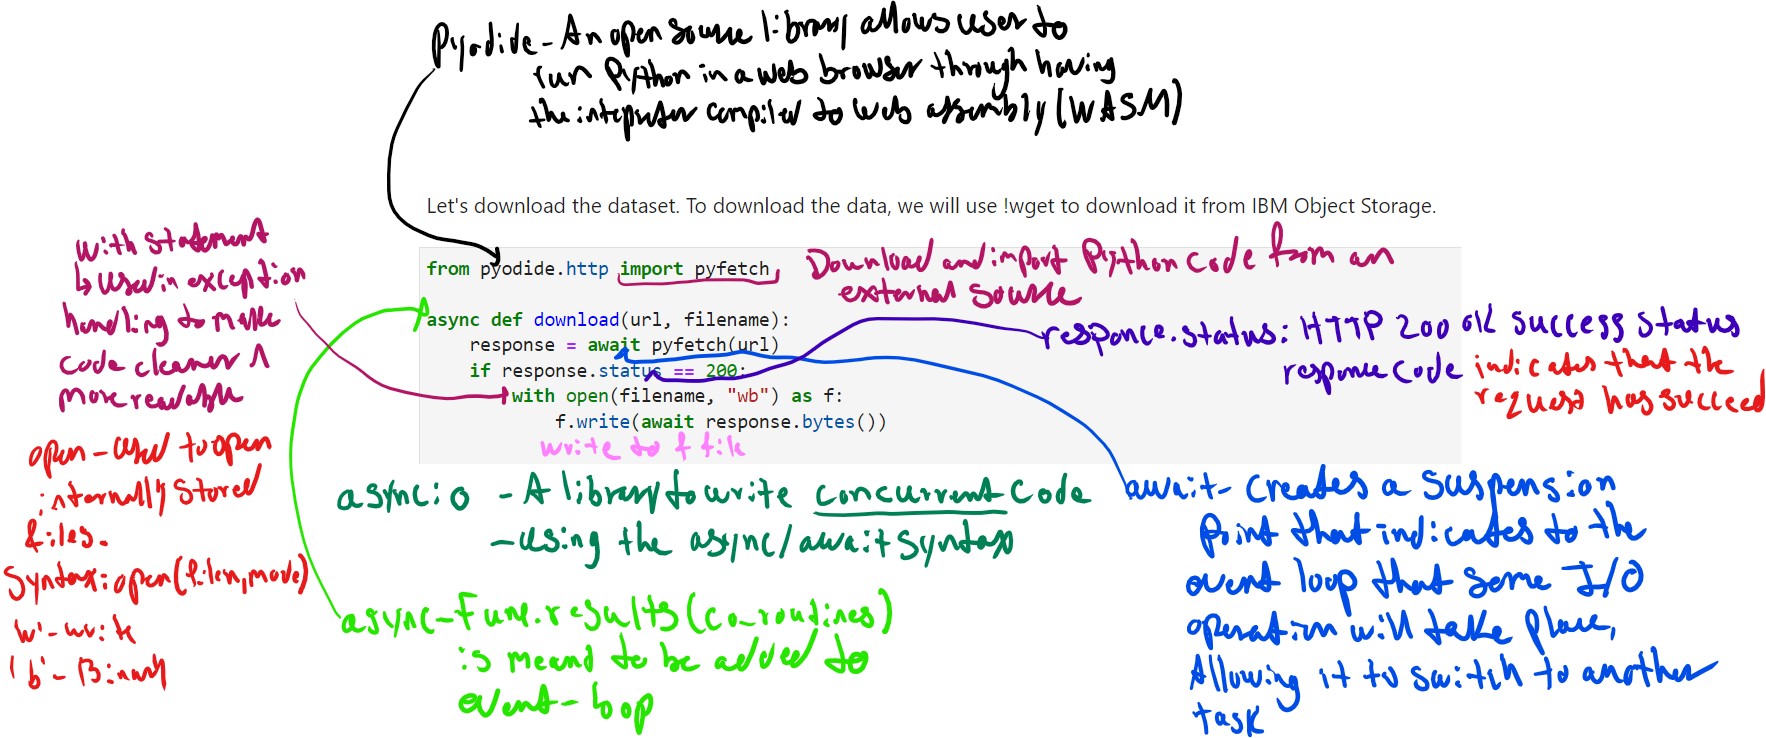 Pyodide - An open source library allows user to
run Python in a web browser through having
the intepreter compiled to web assembly (WASM)
Let's download the dataset. To download the data, we will use !wget to download it from IBM Object Storage.
with statement
↳ Used in exception
handling to make
code cleaner &
more readable
from pyodide.http import pyfetch
Download and import Python code from an
external source
async def download(url, filename):
response = await pyfetch(url)
if response.status == 200:
with open(filename, "wb") as f:
f.write(await response.bytes())
write to f file
responce.status: HTTP 200 OK success status
response code indicates that the
request has succeed
open - used to open
internally stored
files.
Syntax: open(filen, mode)
'w' - write
'b' - Binary
async:o - A library to write concurrent code
- using the async/await syntax
async - Func. results (co-routines)
is meant to be added to
event-loop
await - creates a suspension
point that indicates to the
event loop that some I/O
operation will take place,
Allowing it to switch to another
task